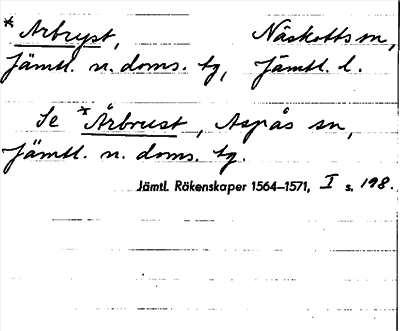 * Arbryst, Näskotts sn,
Jämtl. n. doms. tg, Jämtl. l.
Se *Årbrust, Aspås sn,
Jämtl. n. doms. tg.
Jämtl. Räkenskaper 1564–1571, I s. 198.